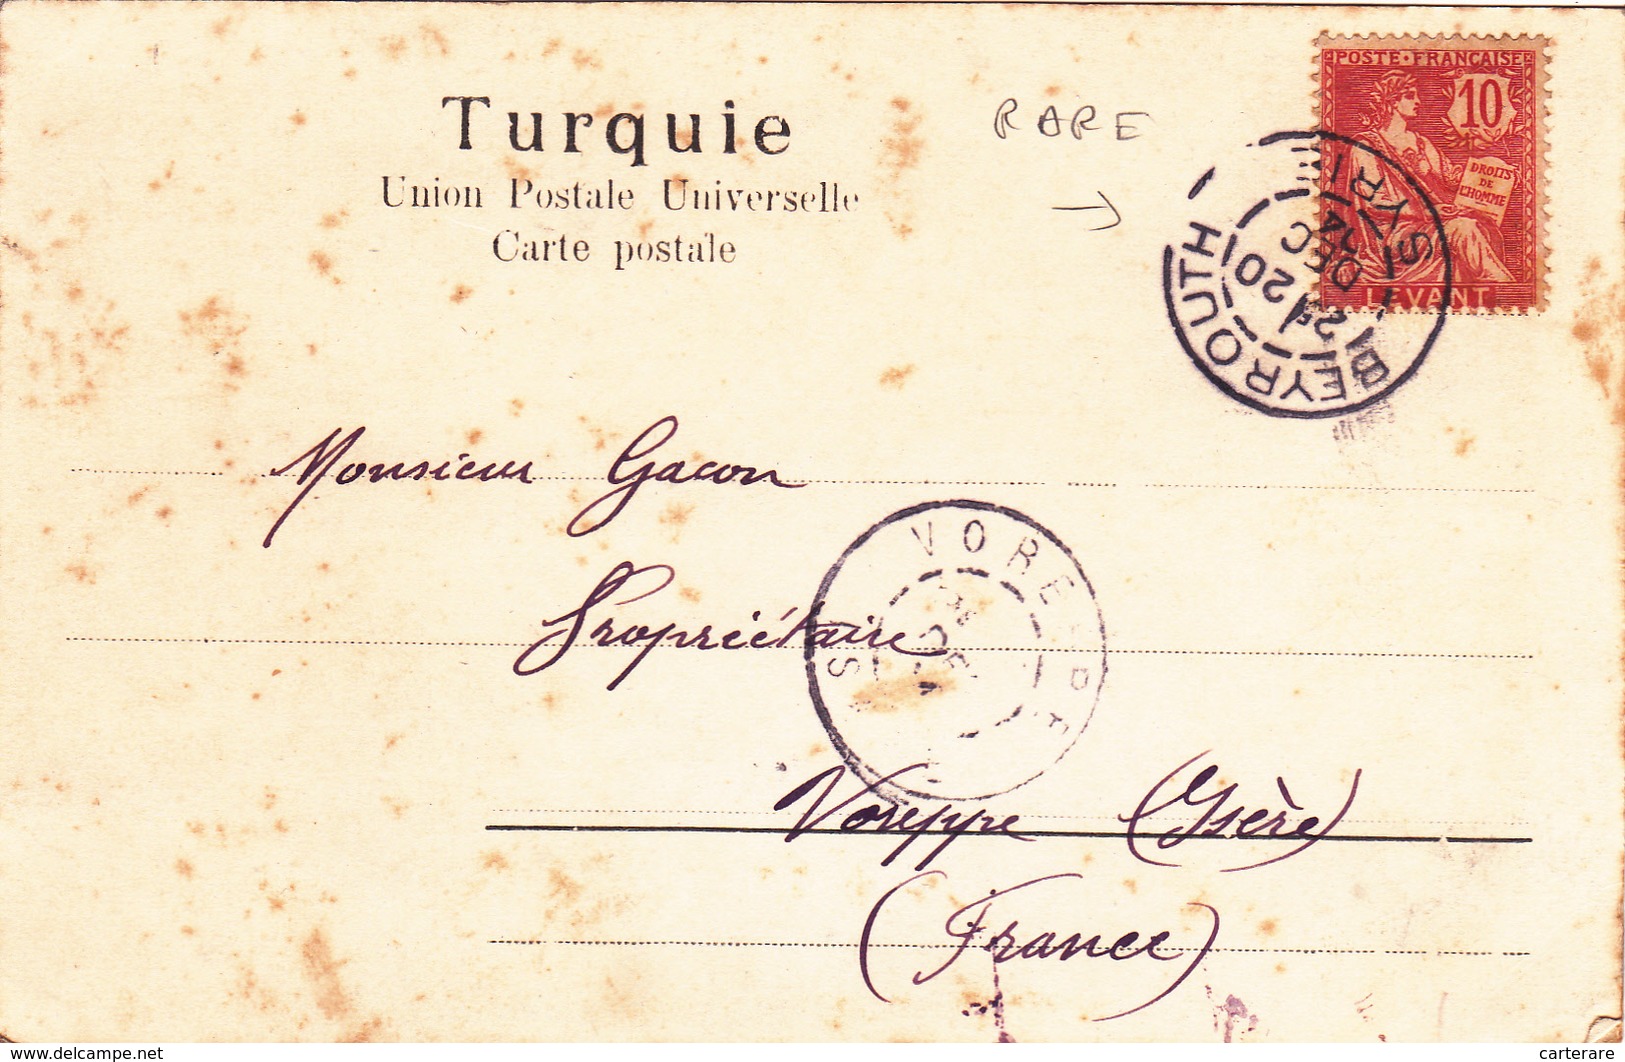 Turquie
Union Postale Universelle
Carte postale
RARE
POSTE·FRANÇAISE
10
DROITS
DE
L'HOMME
LEVANT
BEYROUTH
SYRI
20
DEC
Monsieur Gacon
Propriétaire
VOREPPE
Voreppe (Isère)
(France)
www.delcampe.net
carterare